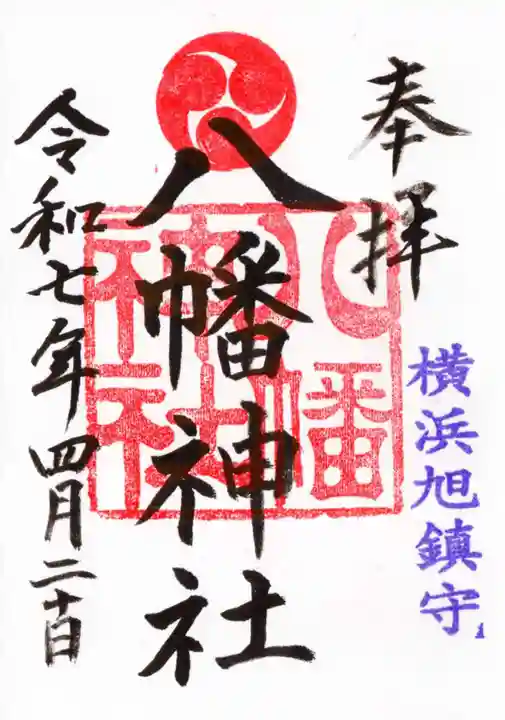 奉拝
横浜旭鎮守
八幡神社
八幡神社
令和七年四月二十日